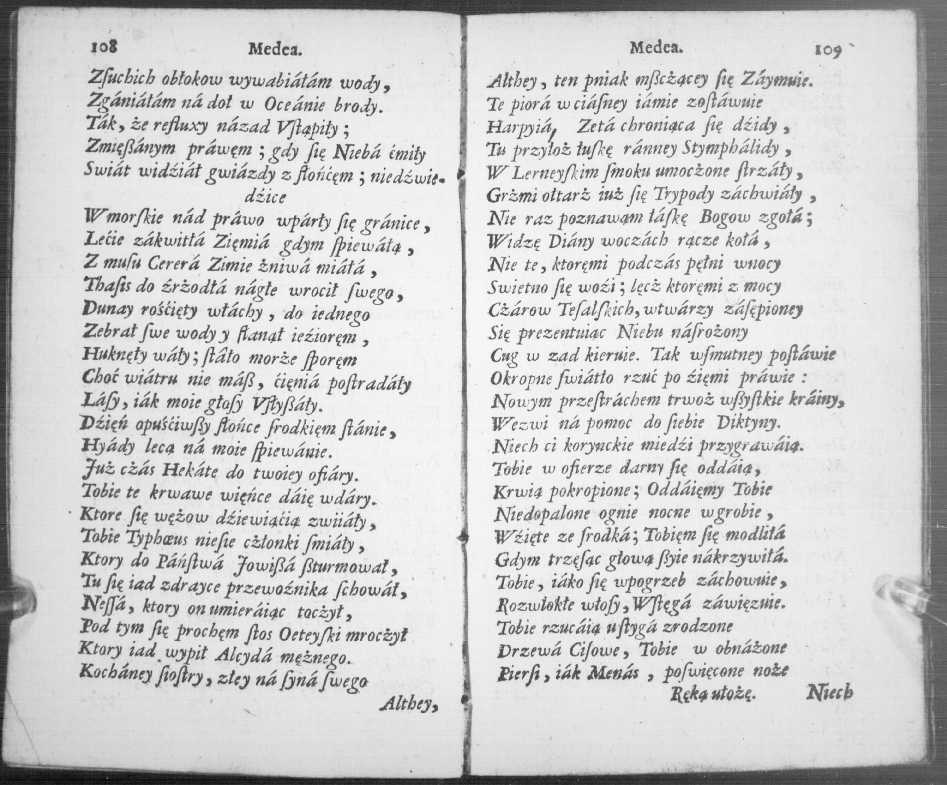 108
Medea.
Zſuchich obłokow wywabiáłám wody,
Zgániáłám ná doł w Oceánie brody.
Ták, że refluxy názad Vſtąpiły;
Zmięßánym práwęm; gdy ſię Niebá ćmiły
Swiát widźiáł gwiázdy z ſłońćęm; niedźwie-
dźice
Wmorſkie nád práwo wpárły ſię gránice,
Lećie zákwitłá Zięmiá gdym ſpiewáłą,
Z muſu Cererá Zimie żniwá miáłá,
Thaſis do źrżodłá nágłe wrocił ſwego,
Dunay rośćięty włáchy, do iednego
Zebrał ſwe wody y ſtanął ieźioręm,
Huknęły wáły; ſtáło morże ſporęm
Choć wiátru nie máß, ćięniá poſtradáły
Láſy, iák moie głoſy Vſłyßáły.
Dźięń opuśćiwßy ſłońce ſrodkięm ſtánie,
Hyády lecą ná moie ſpiewánie.
Już cżás Hekáte do twoiey ofiáry.
Tobie te krwawe więńce dáię wdáry.
Ktore ſię wężow dźiewiąćią zwiiáły,
Tobie Typhœus nieſie cżłonki ſmiáły,
Ktory do Páńſtwá Jowißá ßturmował,
Tu ſię iad zdrayce przewoźnika ſchowáł,
Neſſá, ktory on umieráiąc tocżył,
Pod tym ſię prochęm ſtos Oeteyſki mrocżył
Ktory iad wypił Alcydá mężnego.
Kocháney ſioſtry, złey ná ſyná ſwego
Althey,
Medea.
109
Althey, ten pniak mßcżącey ſię Záymuie.
Te piorá wciáſney iámie zoſtáwuie
Harpyiá, Zetá chroniąca ſię dźidy,
Tu przyłoż łuſkę ránney Stymphálidy,
W Lerneyſkim ſmoku umocżone ſtrzáły,
Grżmi ołtarż iuż ſię Trypody záchwiáły,
Nie raz poznawąm łáſkę Bogow zgołá;
Widzę Diány woczách rącze kołá,
Nie te, ktoręmi podczás pęłni wnocy
Swietno ſię woźi; lęcż ktoręmi z mocy
Cżárow Teſalſkich, wtwárzy záſępioney
Się prezentuiąc Niebu náſrożony
Cug w zad kieruie. Tak wſmutney poſtáwie
Okropne ſwiátło rzuć po źięmi práwie:
Nowym przeſtráchem trwoż wßyſtkie kráiny,
Wezwi ná pomoc do ſiebie Diktyny.
Niech ci korynckie miedźi przygrawáią.
Tobie w ofierze darny ſię oddáią,
Krwią pokropione; Oddáięmy Tobie
Niedopalone ognie nocne wgrobie,
Wźięte ze ſrodká; Tobięm ſię modliłá
Gdym trzęſąc głową ßyie nákrzywiłá.
Tobie, iáko ſię wpogrzeb záchowuie,
Rozwlokłe włoſy, Wſtęgá záwięzuie.
Tobie rzucáią uſtygá zrodzone
Drzewá Ciſowe, Tobie w obnáżone
Pierſi, iák Menás, poſwięcone noże
Ręką ułożę.
Niech